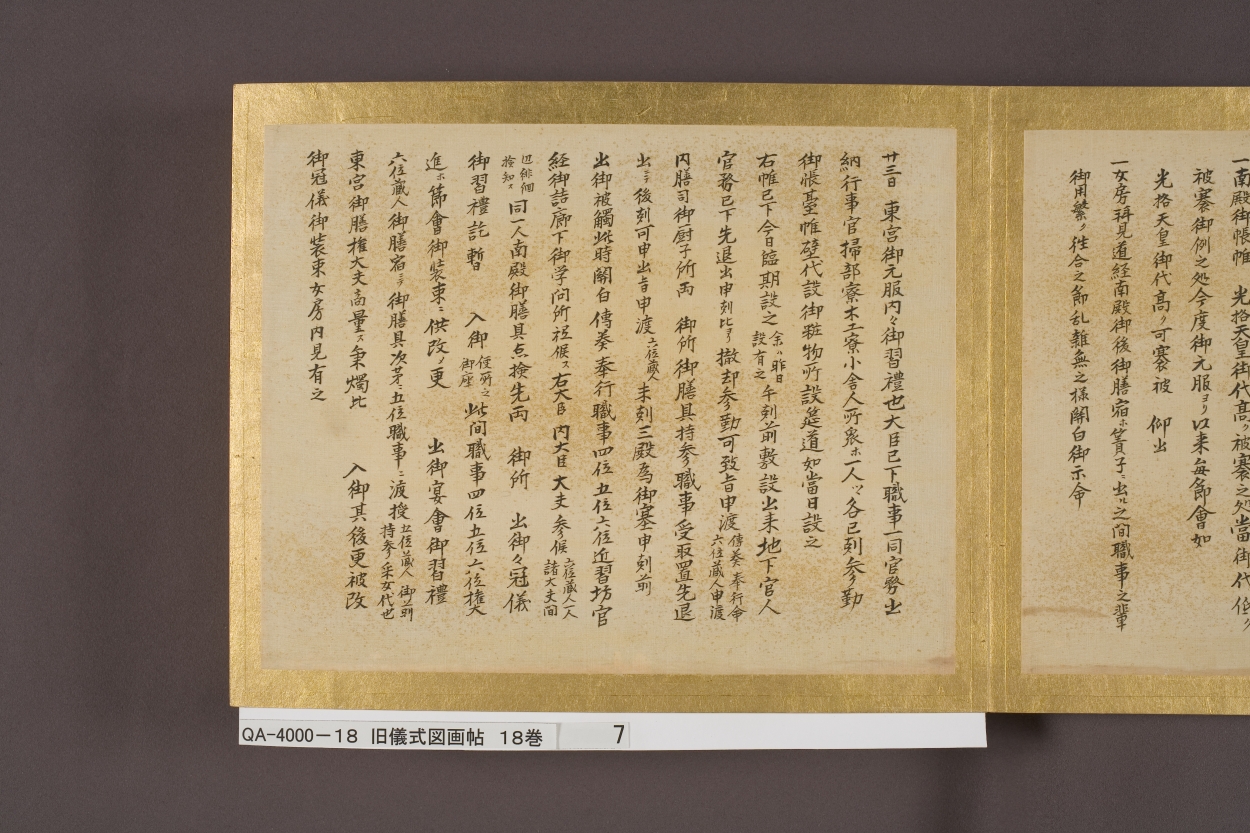 一南殿御帳帷 光格天皇御代高ク被褰之処當御代低ク
被褰御例之処今度御元服ヨリ以来毎節會如
光格天皇御代高ク可褰被 仰出
一女房拝見道経南殿御後御膳宿ホ簀子ニ出ル之間職事之輩
御用繁ノ往合之節乱雜無之様関白御示命
廿三日 東宮御元服内々御習禮也大臣已下職事一同官務出
納行事官掃部寮木工寮小舎人所衆ホ一人ツヽ各巳刻参勤
御帳臺帷壁代設御粧物所設筵道如當日設之
右帷已下今日臨期設之余ハ昨日設有之午刻前敷設出来地下官人
官務已下先退出申刻比ヨリ撤却参勤可致旨申渡傳奏奉行命六位蔵人申渡
内膳司御厨子所両 御所御膳具持参職事受取置先退
出ニテ後刻可申出旨申渡六位蔵人未刻三殿為御塞申刻前
出御被觸此時関白傳奏奉行職事四位五位六位近習坊官
経御詰廊下御学问所祗候ス右大臣内大臣大夫参候六位蔵人一人諸大夫間
辺徘徊捡知ス同一人南殿御膳具点捡先両 御所 出御々冠儀
御習禮訖暫 入御便所ニ御座此间職事四位五位六位権大
進ホ節會御装束ニ供改ノ更 出御宴會御習禮
六位蔵人御膳宿ニテ御膳具次茅ニ五位職事ニ渡授五位蔵人御前持参采女代也
東宮御膳権大夫尚量ス秉燭比 入御其後更被改
御冠儀御装束女房内見有之
QA-4000-18 旧儀式図画帖 18巻 7